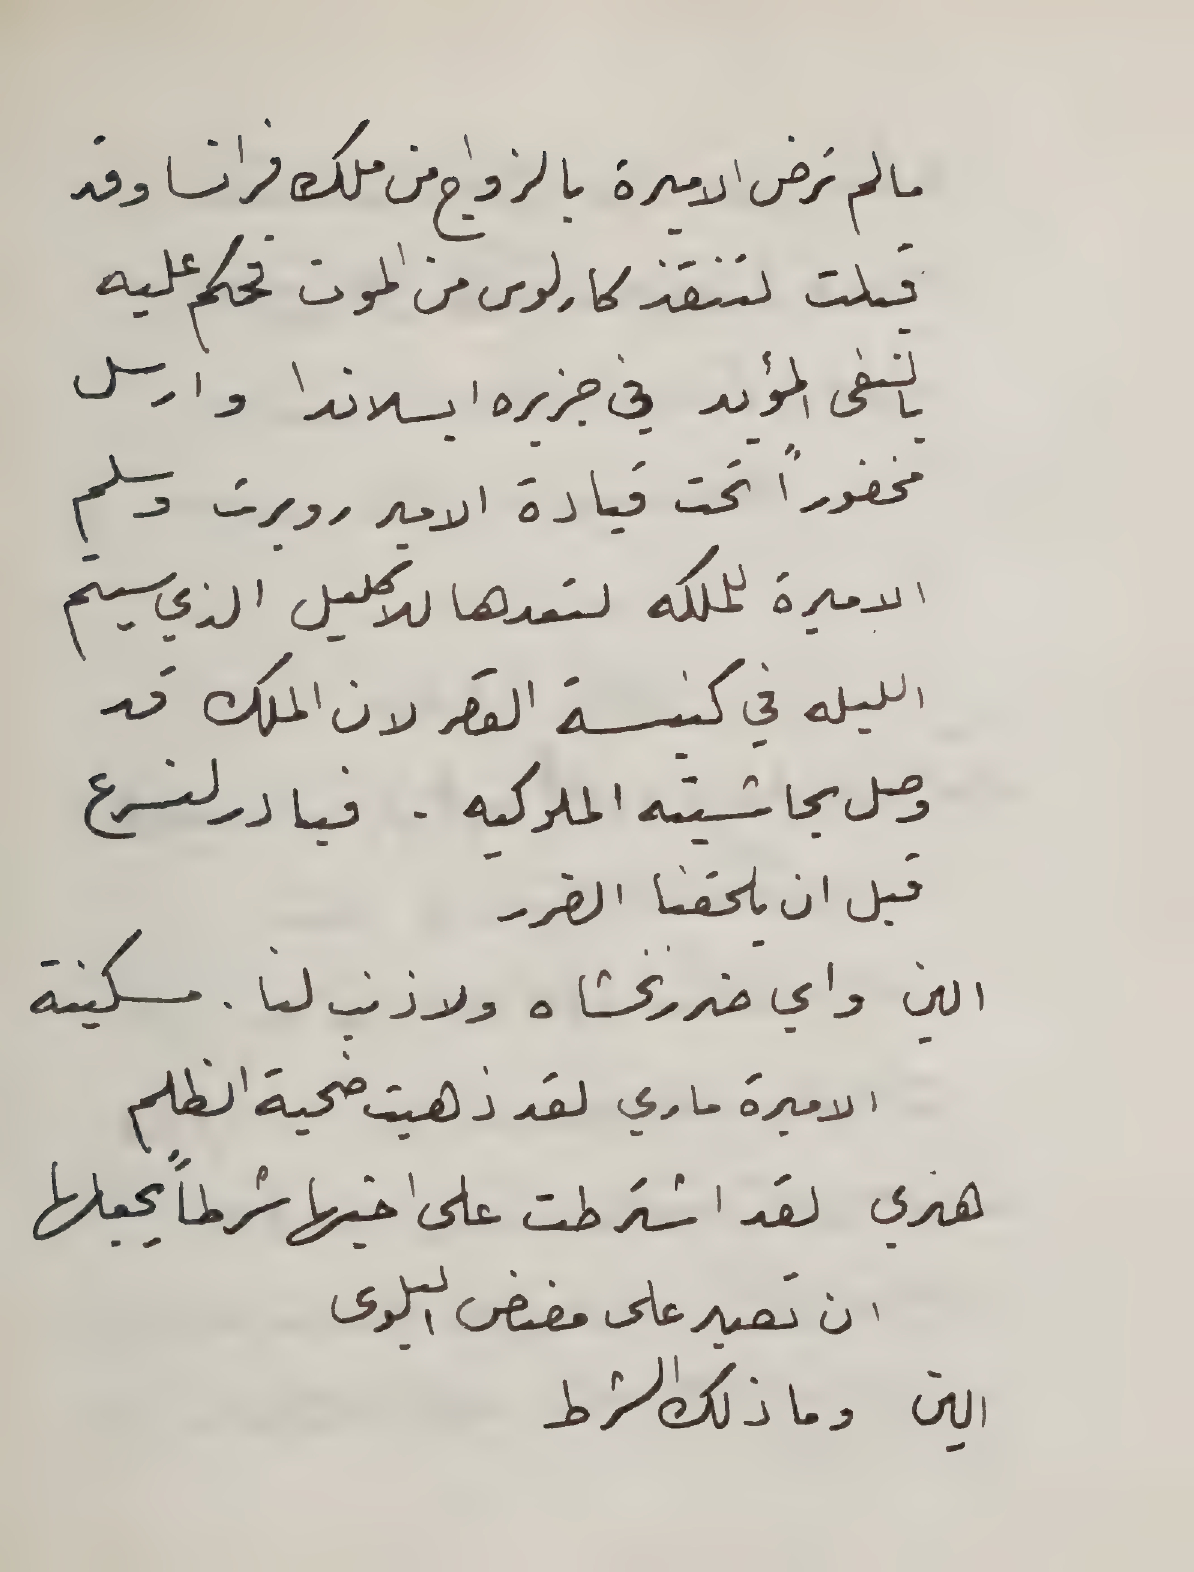 مالم ترض الاميرة بالزواج من ملك فرانسا وقد
قبلت لتنقذ كارلوس من الموت فحكم عليه
بالنفى المؤبد في جزيره ايسلاندا وارسل
مخفوراً تحت قيادة الامير روبرت وسلم
الاميرة للملكه لتعدها للاكليل الذي سيتم
الليله في كنيسة القصر لان الملك قد
وصل بحاشيته الملوكيه . فبادر لنسرع
قبل ان يلحقنا الضرر
الين واي ضرر نخشاه ولا ذنب لنا . مسكينة
الاميرة ماري لقد ذهبت ضحية الظلم
هنري لقد اشترطت على اخيها شرطاً يجعلها
ان تصبر على مضض البلوى
الين وما ذلك الشرط